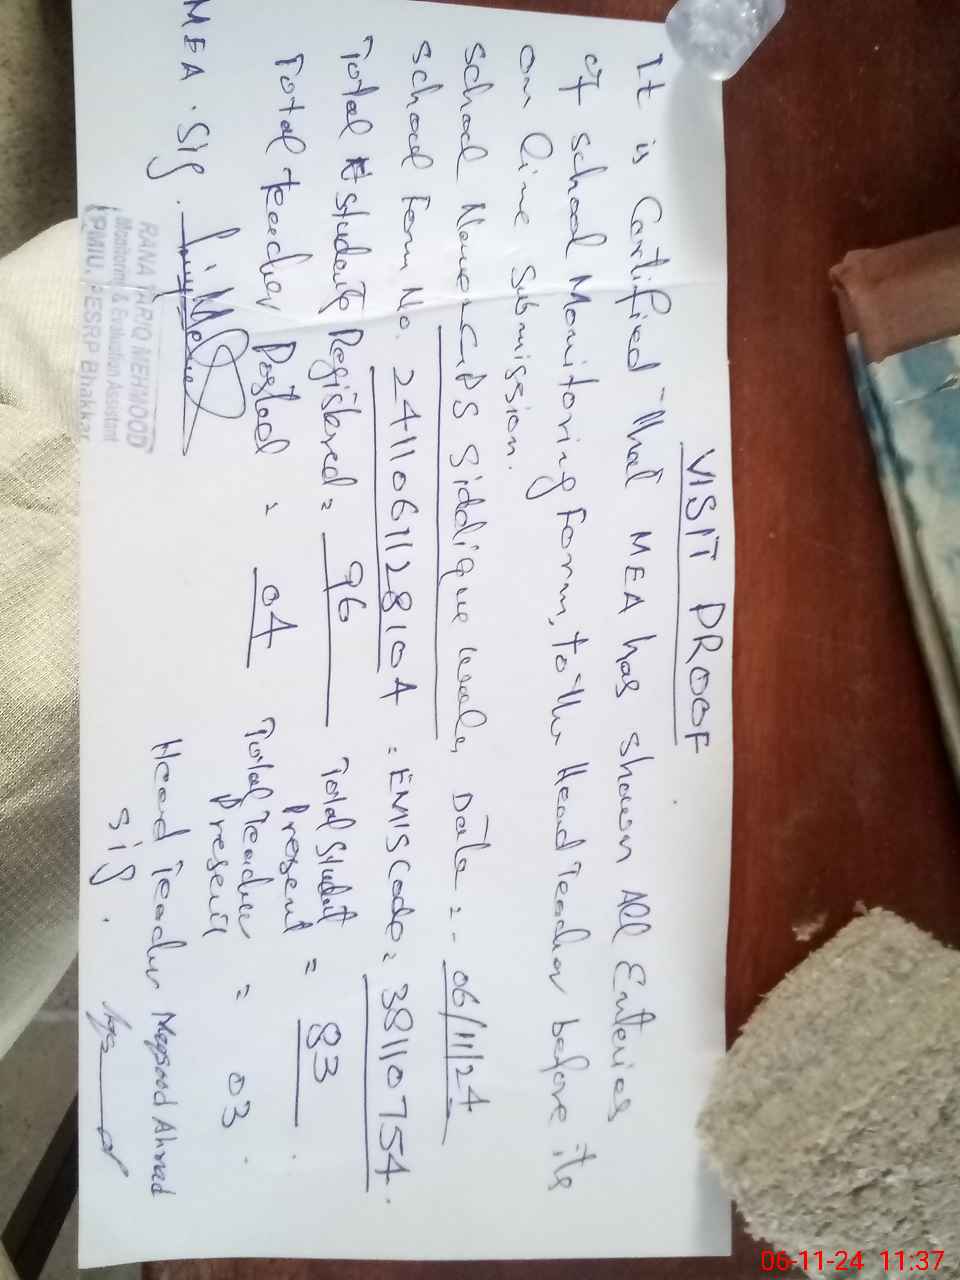 VISIT PROOF
It is Certified that MEA has shown All Enteries
of school Monitoring Form, to the Head Teacher before its
on line submission.
school Name - GPS Siddique wala, Date:- 06/11/24
school Form No. 2411061128104 = EMIS Code = 38110754.
Total students Registered = 96 Total Student Present = 83
Total teacher Posted = 04 Total Teacher Present = 03
MEA . Sig.
Head Teacher Maqsood Ahmad
Sig.
RANA TARIQ MEHMOOD
Monitoring & Evaluation Assistant
PMIU, PESRP Bhakkar
06-11-24 11:37